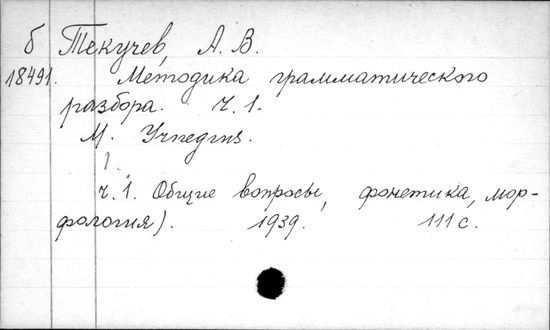 б Текучев, А. В.
18491. Методика грамматического
разбора. Ч. 1.
М. Учпедгиз.
ч. 1. Общие вопросы, фонетика, мор-
фология). 1939. 111 с.